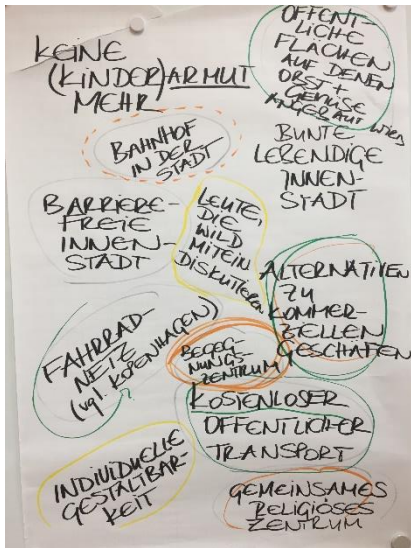 KEINE
(KINDER)ARMUT
MEHR
ÖFFENT-
LICHE
FLÄCHEN
AUF DENEN
OBST +
GEMÜSE
ANGEBAUT WIRD
BAHNHOF
IN DER
STADT
BUNTE
LEBENDIGE
INNEN-
STADT
BARRIERE-
FREIE
INNEN-
STADT
LEUTE,
DIE
WILD
MITEIN.
DISKUTIEREN
ALTERNATIVEN
ZU
KOMMER-
ZIELLEN
GESCHÄFEN
FAHRRAD-
NETZ
(vgl. KOPENHAGEN)
BEGEG-
NUNGS-
ZENTRUM
KOSTENLOSER
ÖFFENTLICHER
TRANSPORT
INDIVIDUELLE
GESTALTBAR-
KEIT
GEMEINSAMES
RELIGIÖSES
ZENTRUM